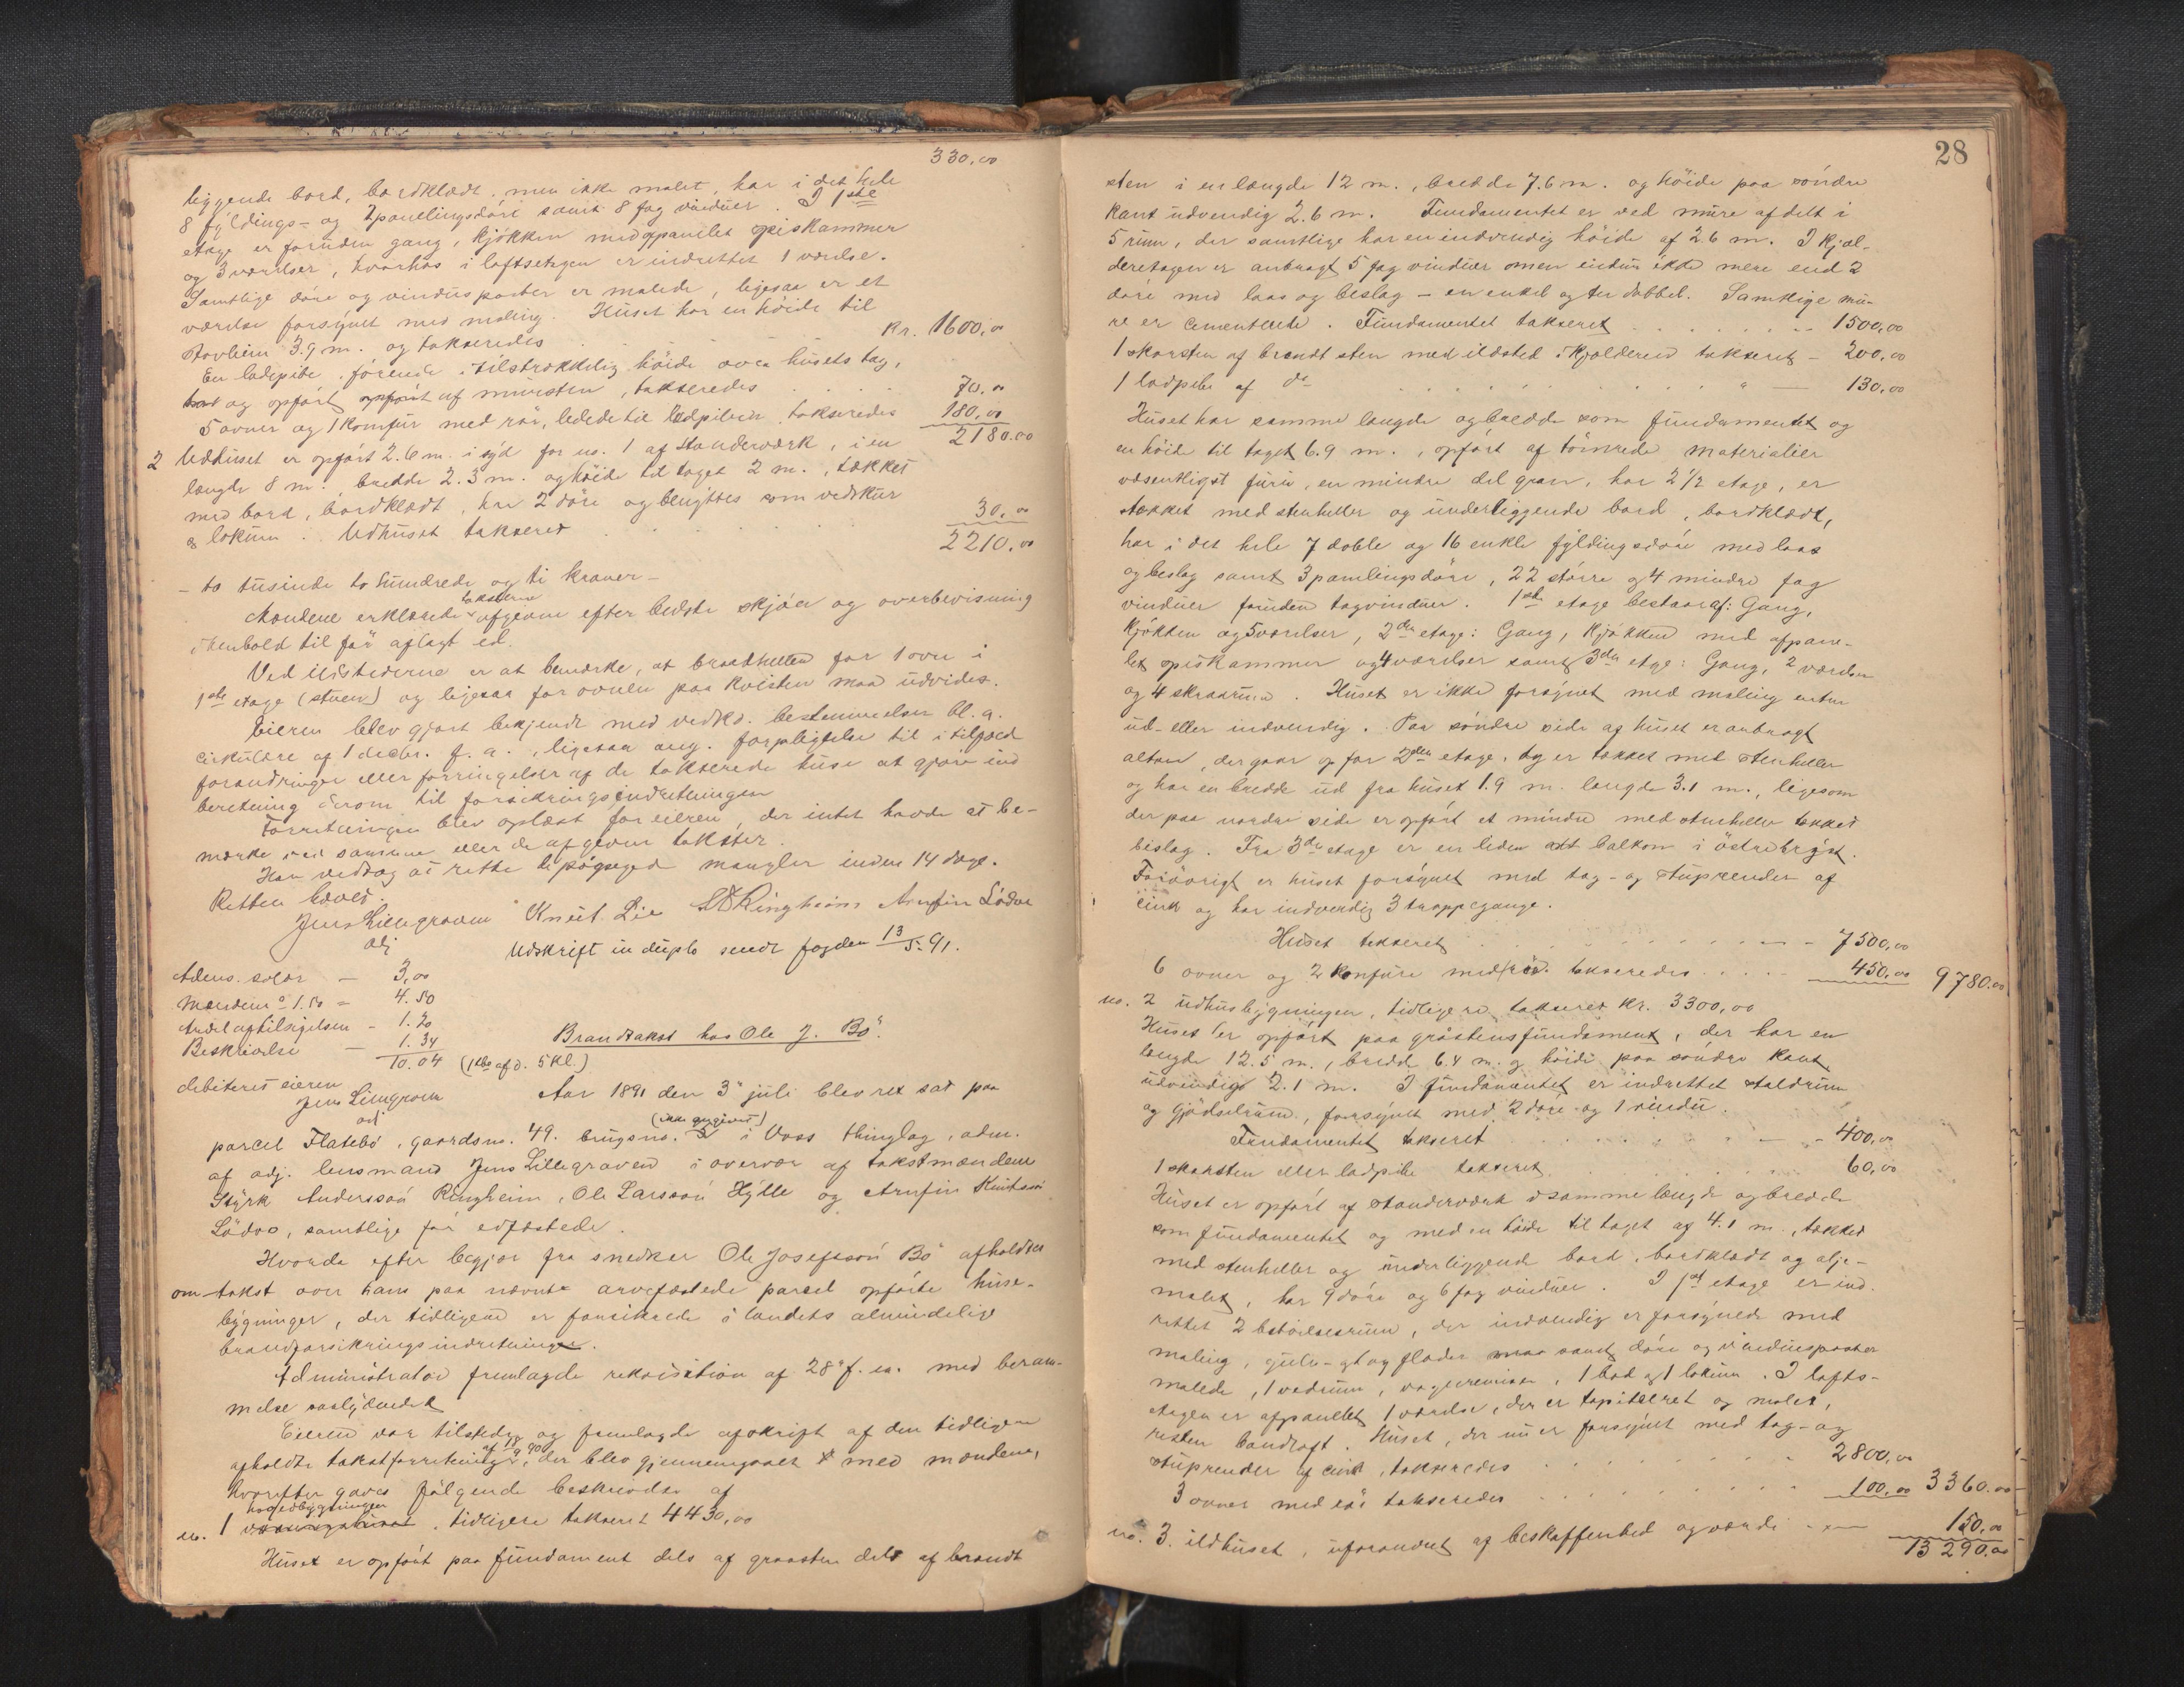 330,00
liggende bord, bordklædt, men ikke malet, har i det hele
8 fyldings- og 2 panelingsdöre samt 8 fag vinduer. I 1ste
etage er foruden gang, kjøkken med afpanelet spiskammer
og 3 værelser, hvorhos i loftsetagen er indrettet 1 værelse.
Samtlige döre og vindusposter er malede, ligesaa er et
værelse forsynet med maling. Huset har en höide til
Kr. 1600,00
3.9 m. og takseredes
En ladepibe, förende i tilstrækkelig höide over husets tag,
og opfört af mursten, takseredes 70,00
5 ovner og 1 komfur med rör, ledede til ladpiben takseredes 180,00
2180.00
2 Udhuset er opfört 2.6 m. i syd for no. 1 af standerværk, i en
længde 8 m., bredde 2.3 m. og höide til taget 2 m., tækket
med bord, bordklædt, har 2 döre og benyttes som vedskur
og lokum. Udhuset takseret 30,00
2210,00
- to tusinde to hundrede og ti kroner -
Mændene erklærede taksterne afgivne efter bedste skjön og overbevisning
i henhold til för aflagt ed.
Ved ildstederne er at bemærke, at brandhellen for 1 ovn i
1ste etage (stuen) og ligesaa for ovnen paa kvisten maa udvides.
Eieren blev gjort bekjendt med vedkd. bestemmelser bl. a.
cirkulære af 1 decbr. f. a., ligesaa ang. forpligtelse til i tilfæld
forandringer eller forringelser af de takserede huse at gjöre ind
beretning derom til forsikringsindretningen
Forretningen blev oplæst for eieren, der intet havde at be-
mærke ved samme eller de afgivne takster.
Han vedtog at rette de paapegede mangler inden 14 dage.
Retten hævet.
Jens Lillegraven Knut Lie S A Ringheim Arnfin Lödve
adj
Udskrift in duplo sendt fogden 13/5 91.
Adms. salær - 3,00
Mændene a 1.50 - 4.50
Andel af tilsigelsen - 1.20
Beskrivelse - 1.34
10.04 (1ste afd. 5 kl.)
debiteret eieren
Jens Lillegraven
adj
Brandtakst hos Ole J. Bö.
Aar 1891 den 3' juli blev ret sat paa
(ikke opgivet)
parcel Flatebö, gaardsno. 49. brugsno. i Voss thinglag, adm.
af adj. lensmand Jens Lillegraven i overvær af takstmændene
Styrk Anderssön Ringheim, Ole Larssön Hylle og Arnfin Knutssön
Lödve, samtlige för edfæstede.
Hvorda efter begjær fra snedker Ole Josefssön Bö afholdtes
om-takst over hans paa nævnte arvefæstede parcel opförte huse-
bygninger, der tidligere er forsikrede i landets almindelige
brandforsikringsindretning.
Administrator fremlagde rekvisition af 28' f. m. med beram-
melse saalydende
Eieren var tilstede og fremlagde afskrift af den tidligere
afholdte takstforretning af 18/9 90, der blev gjennemgaaet med mændene,
hvorefter gaves fölgende beskrivelse af
no. 1 hovedbygningen, tidligere takseret 4430,00
Huset er opfört paa fundament dels af graasten dels af brændt
28
sten i en længde 12 m., bredde 7.6 m. og höide paa söndre
kant udvendig 2.6 m. Fundamentet er ved mure afdelt i
5 rum, der samtlige har en indvendig höide af 2.6 m. I kjæl-
deretagen er anbragt 5 fag vinduer men endnu ikke mere end 2
döre med laas og beslag - en enkel og en dobbel. Samtlige mu-
re er cementerede. Fundamentet takseret 1500,00
1 skorsten af brændt sten med ildsted i kjælderen takseret - 200,00
1 ladpibe af do - 130,00
Huset har samme længde og bredde som fundamentet og
en höide til taget 6.9 m., opfört af tömrede materialier
væsentligst furu, en mindre del gran, har 2 1/2 etage, er
tækket med stenheller og underliggende bord, bordklædt,
har i det hele 7 doble og 16 enkle fyldingsdöre med laas
og beslag samt 3 panelingsdöre, 22 större og 4 mindre fag
vinduer foruden tagvinduer. 1ste etage bestaar af: Gang,
kjökken og 5 værelser, 2den etage: Gang, kjökken med afpane-
let spiskammer og 4 værelser samt 3die etage: Gang, 2 værelser
og 4 skraarum. Huset er ikke forsynet med maling enten
ud- eller indvendig. Paa söndre side af huset er anbragt
altan, der gaar op for 2den etage, og er tækket med stenheller
og har en bredde ud fra huset 1.9 m. længde 3.1 m., ligesom
der paa nordre side er opfört et mindre med stenheller tækket
bislag. Fra 3die etage er en liden balkon i östre bryst.
Forövrigt er huset forsynet med tag- og stuprender af
cink og har indvendig 3 trappegange.
Huset takseret - 7500,00
6 ovner og 2 komfure med rör takseredes 450,00 9780.00
no. 2 udhusbygningen, tidligere takseret Kr. 3300,00
Huset er opfört paa graastensfundament, der har en
længde 12.5 m., bredde 6.4 m. og höide paa söndre kant
udvendig 2.1 m. I fundamentet er indrettet staldrum
og gjödselrum, forsynet med 2 döre og 1 vindu.
Fundamentet takseret - 400,00
1 skorsten eller ladpibe takseret 60,00
Huset er opfört af standerværk i samme længde og bredde
som fundamentet og med en höide til taget af 4.1 m., tækket
med stenheller og underliggende bord, bordklædt og olje-
malet, har 9 döre og 6 fag vinduer. I 1ste etage er ind-
rettet 2 beboelsesrum, der indvendig er forsynede med
maling, gulv- og flader samt döre og vinduesposter
malede, 1 vedrum, vognremise, 1 bod og 1 lokum. I lofts-
etagen er afpanelet 1 værelse, der er tapitseret og malet,
resten landloft. Huset, der nu er forsynet med tag- og
stuprender af cink, takseredes 2800,00
3 ovner med rör takseredes 100,00 3360.00
no. 3. ildhuset, uforandret af beskaffenhed og værdi 150,00
13290.00